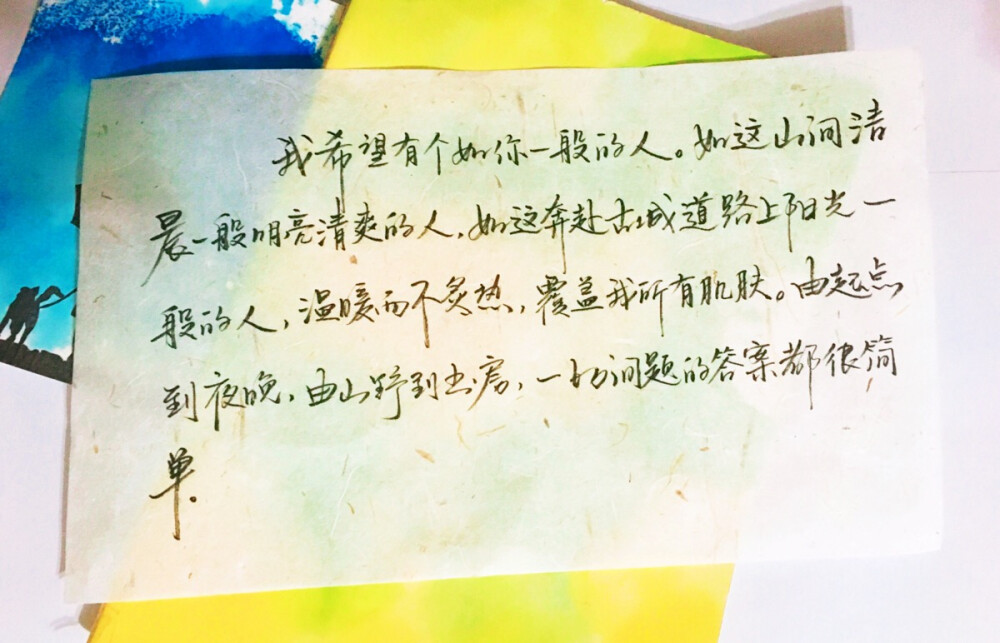 我希望有个如你一般的人。如这山间洁
晨一般明亮清爽的人,如这奔赴古城道路上阳光一
般的人,温暖而不炙热,覆盖我所有肌肤。由起点
到夜晚,由山野到书房,一切问题的答案都很简
单.